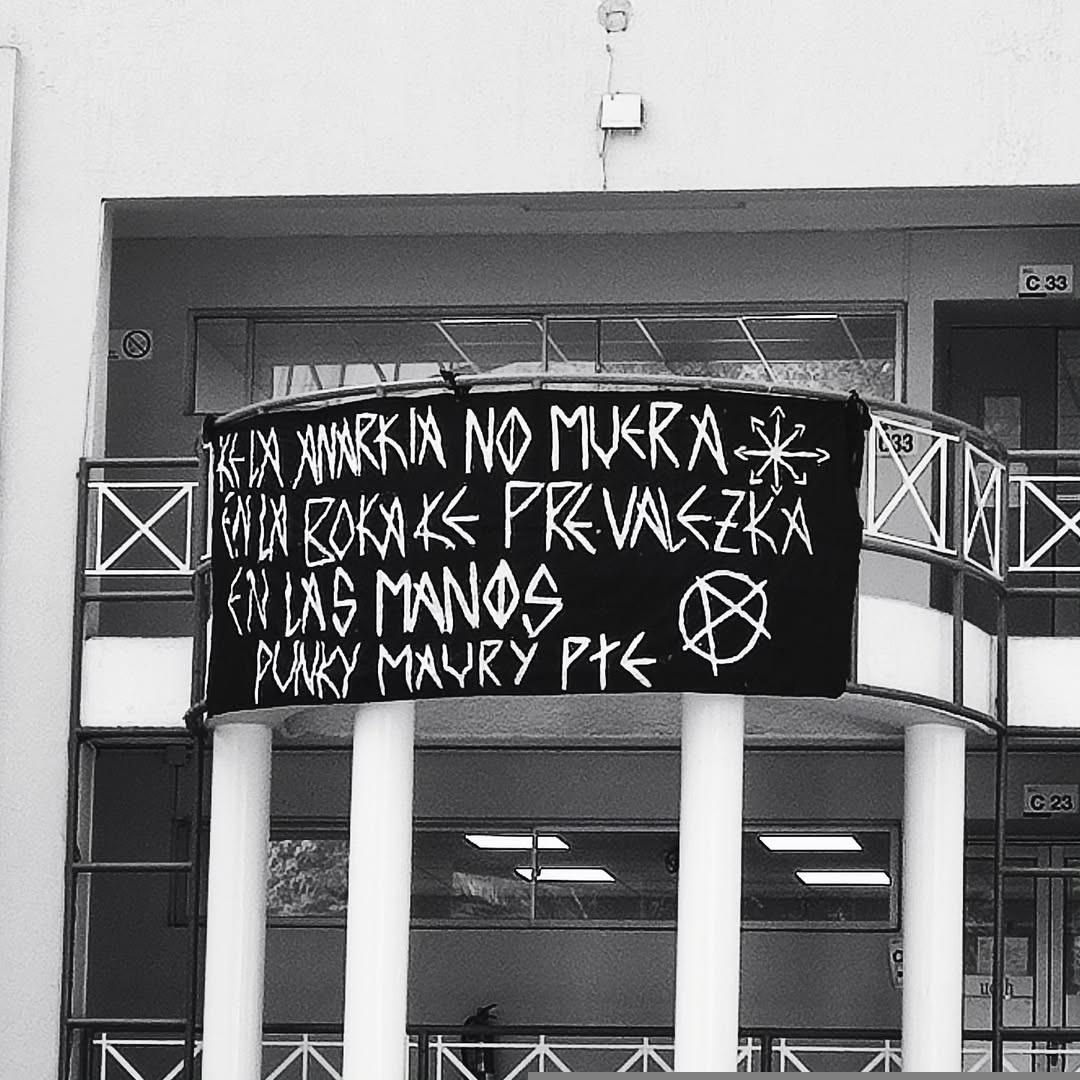 C 33
KE LA ANARKIA NO MUERA
EN LA BOKA KE PREVALEZKA
EN LAS MANOS
PUNKY MAURY PTE
C 23